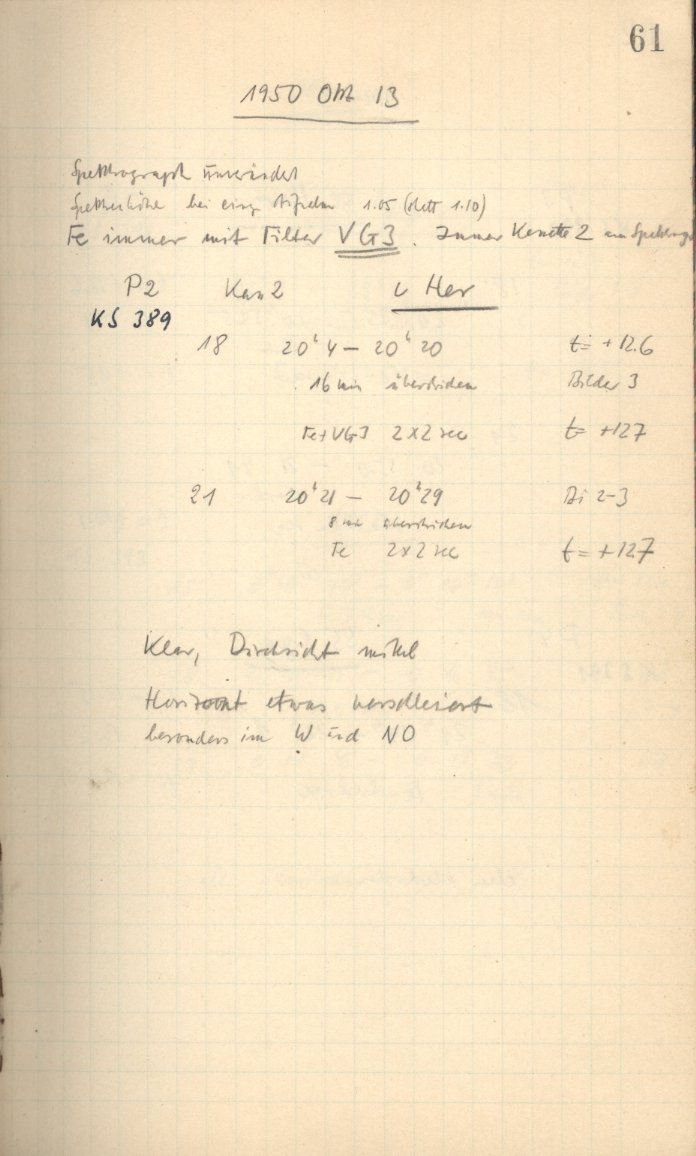 61
1950 Okt 13
Spektrograph unverändert
Spektrenhöhe bei 1.05 (statt 1.10)
Fe immer mit Filter VG3. Immer Kassette 2 am Spektrogr
P2 Kas 2 ι Her
KS 389
18 20ʰ4 – 20ʰ20 t= +12.6
16 min überstrichen Bilder 3
Fe+VG3 2x2 sec t= +12.7
21 20ʰ21 – 20ʰ29 Bi 2-3
8 min überstrichen
Fe 2x2 sec t= +12.7
Klar, Durchsicht mittel
Horizont etwas verschleiert
besonders im W und NO